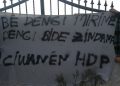 BÊ DENGÎ MIRINE
DENGÎ BIDE ZINDANA
CIWANÊN HDP